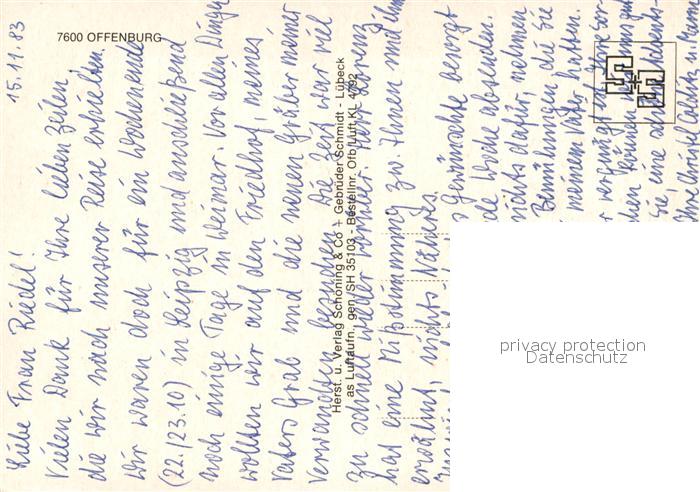 7600 OFFENBURG
15.11.83
Liebe Frau Rüdel!
Vielen Dank für Ihre lieben Zeilen
die wir nach unserer Reise erhielten.
Wir waren doch für ein Wochenende
(22./23.10) in Leipzig und anschließend
noch einige Tage in Weimar. Vor allen Dingen
wollten wir auf den Friedhof, meines
Vaters Grab und die neuen Gräber meiner
Verwandten besuchen. Die Zeit war viel
zu schnell wieder vorüber. Herr Lorenz
hat eine Mißstimmung zw. Ihnen und ihm
erwähnt, nichts Näheres.
Gewünschte besorgt
Woche absenden.
nichts dafür nehmen
Bemühungen die Sie
meinem Vater hatten.
Herst. u. Verlag Schöning & Co + Gebrüder Schmidt - Lübeck
as Luftaufn. gen./SH 35103 - Bestellnr. Ofb/Luft KL 4792
privacy protection
Datenschutz